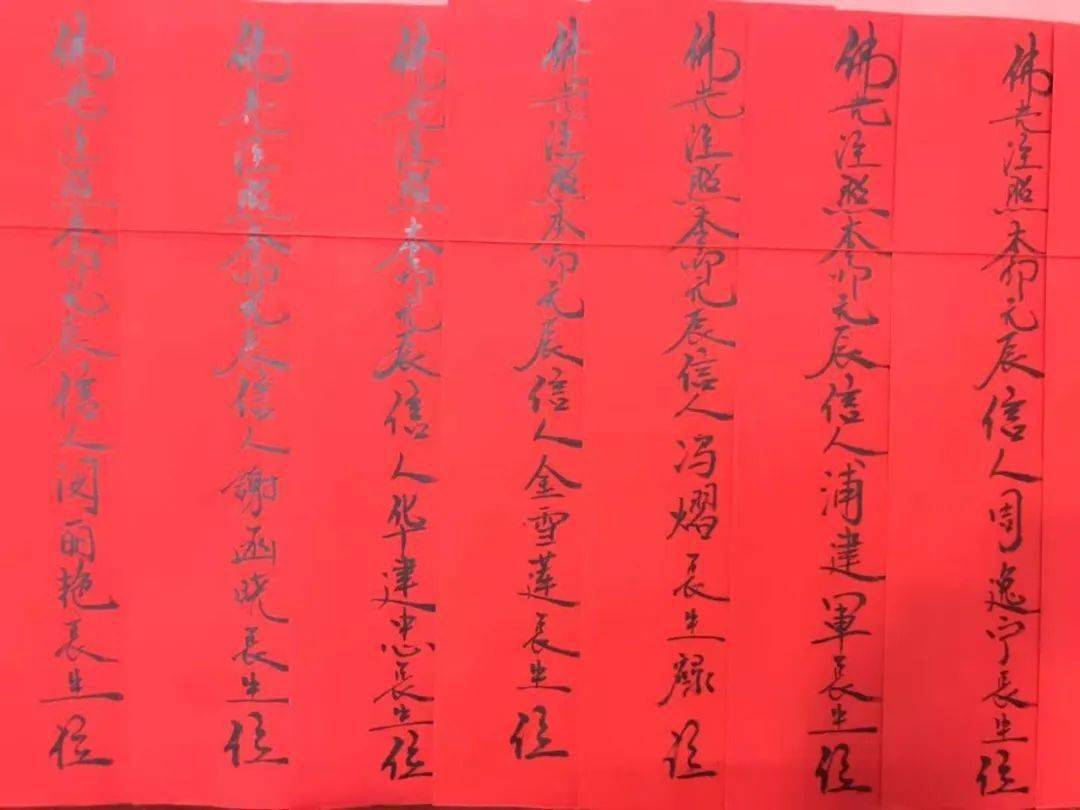 佛光注照本命元辰信人周逸宁長生位
佛光注照本命元辰信人浦建軍長生位
佛光注照本命元辰信人冯熠長生祿位
佛光注照本命元辰信人金雪莲長生位
佛光注照本命元辰信人华建忠長生位
佛光注照本命元辰信人謝函晓長生位
佛光注照本命元辰信人闵丽艳長生位